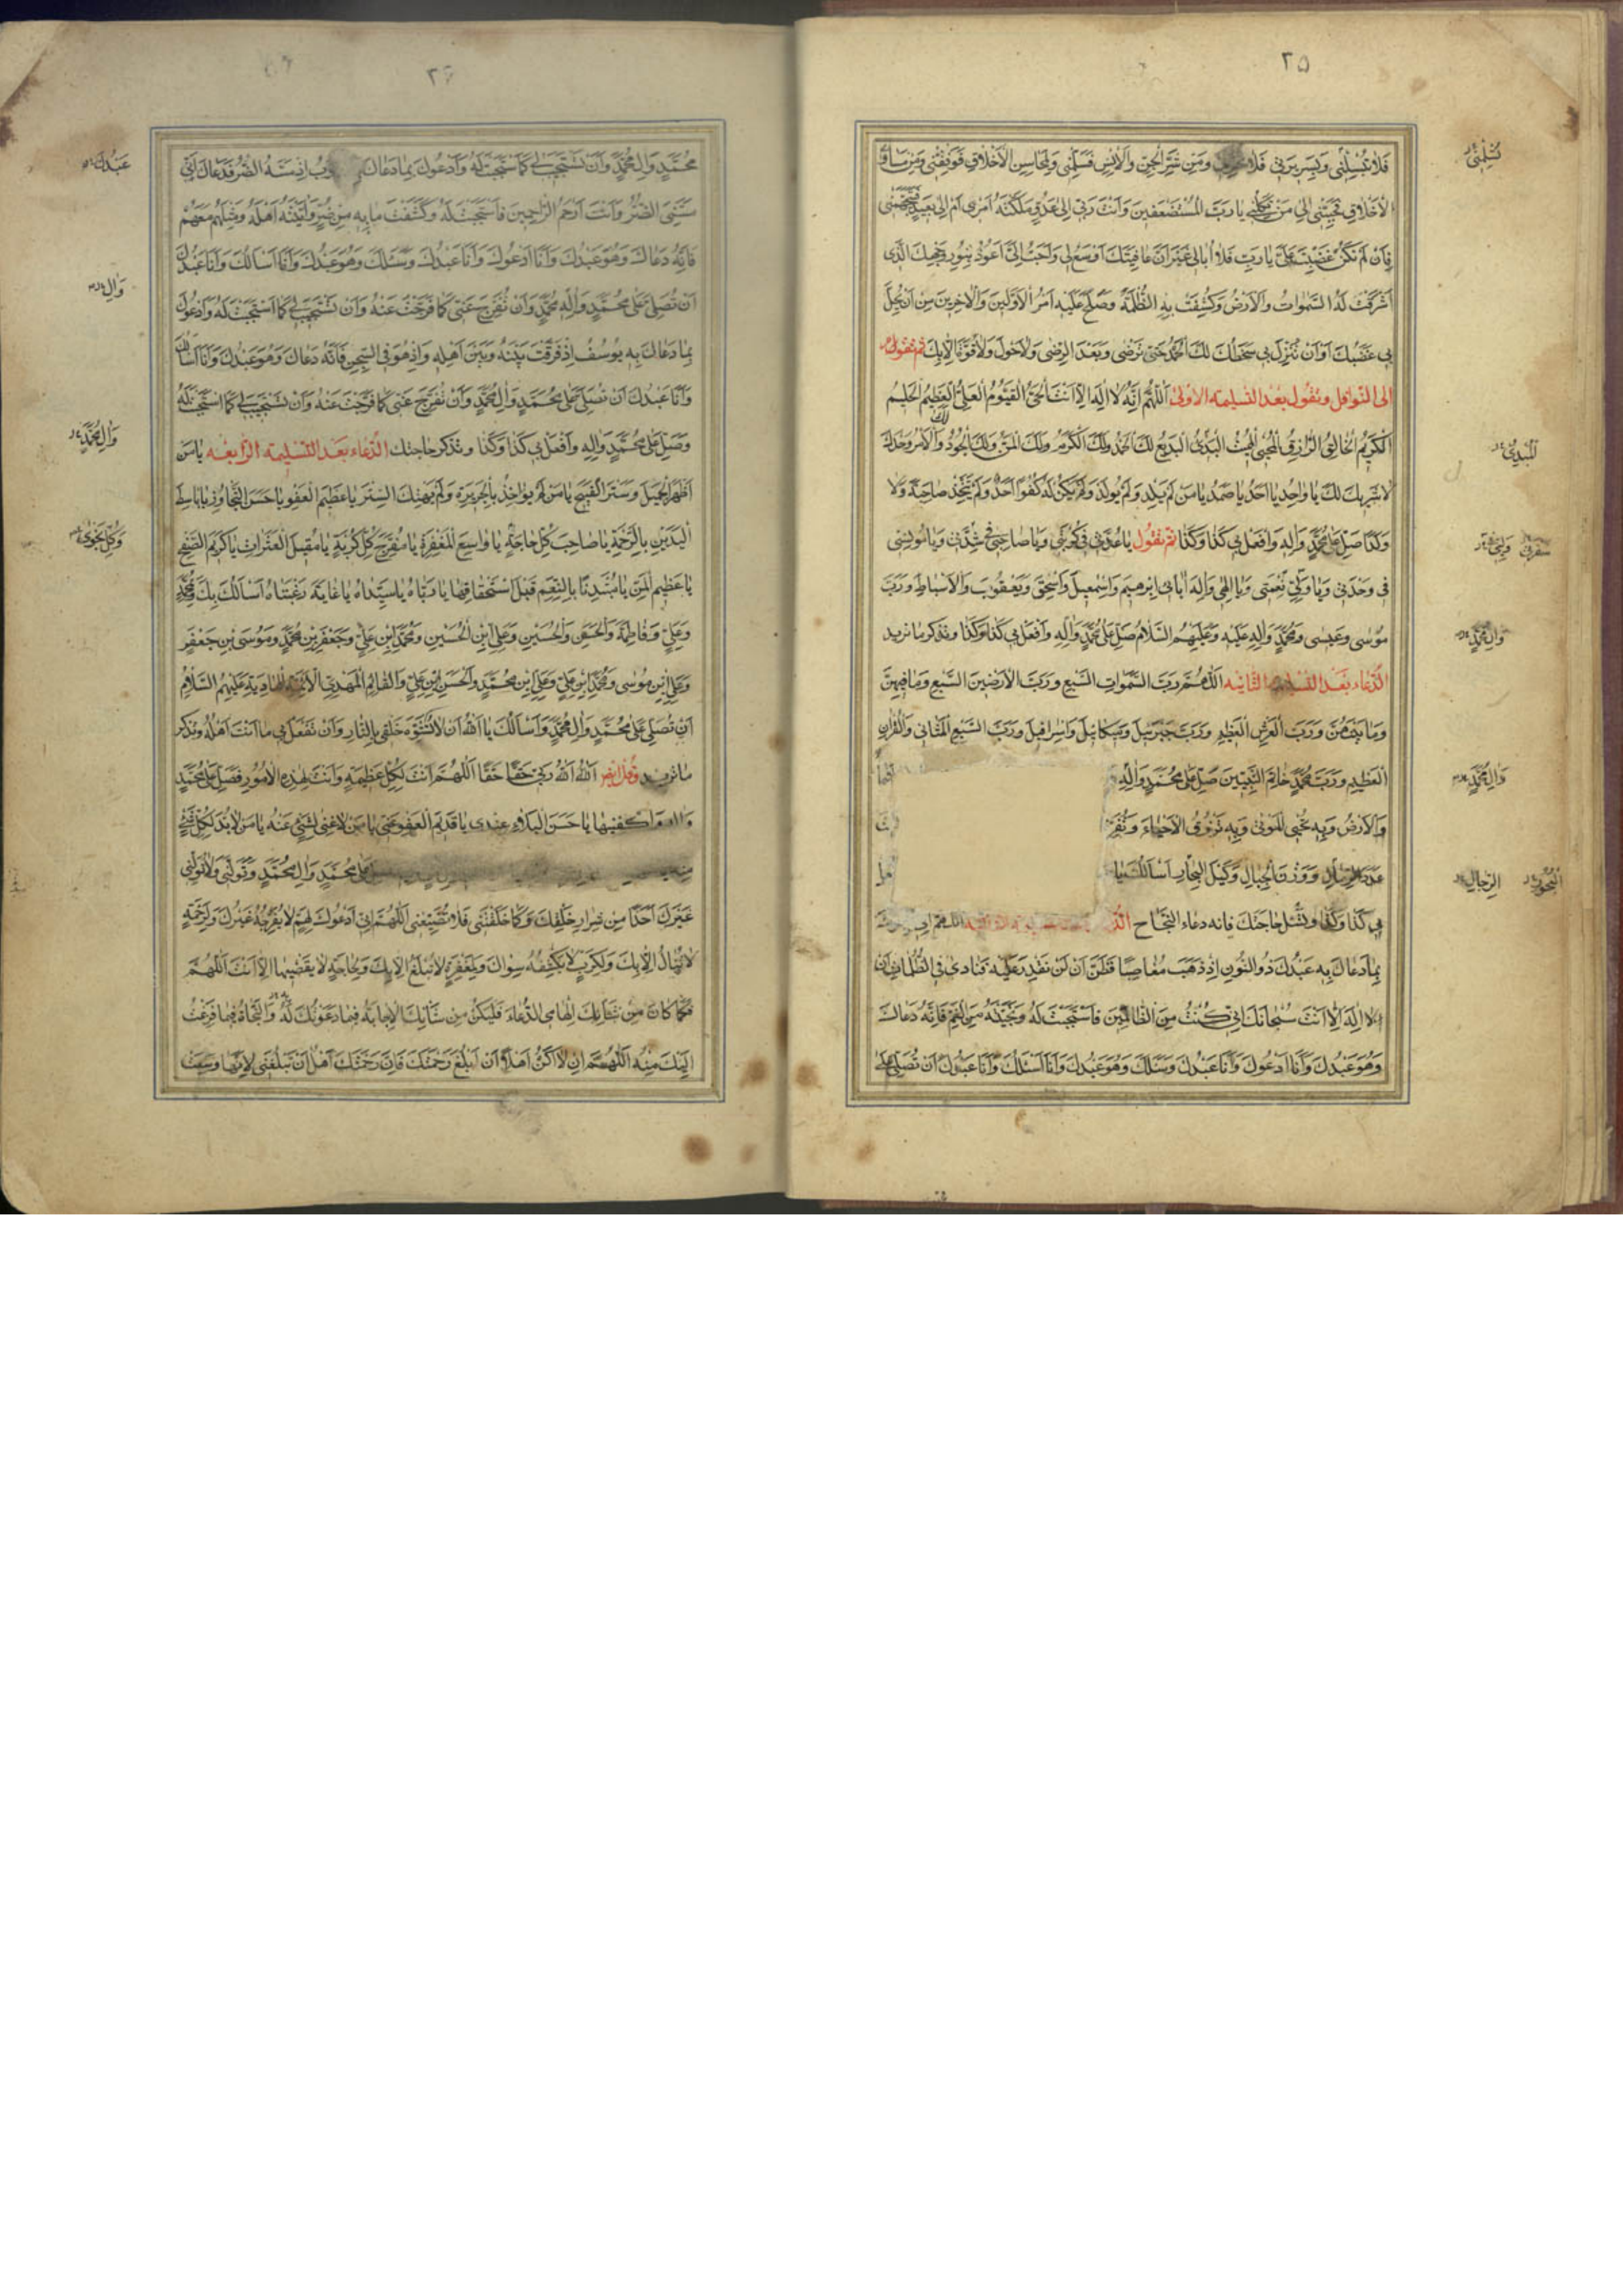 ٢٥
فَلَا تُبْسِلْنِی وَبِسَرِیرَتِی فَلَا وَمِنْ شَرِّ الْجِنِّ وَالْاِنْسِ فَسَلِّمْنِی وَلِمَحَاسِنِ الْاَخْلَاقِ فَوَفِّقْنِی وَمِنْ مَسَاوِی
الْاَخْلَاقِ فَجَنِّبْنِی اِلٰی مَنْ تَکِلُنِی یَا رَبَّ الْمُسْتَضْعَفِینَ وَاَنْتَ رَبِّی اِلٰی عَدُوٍّ مَلَّکْتَهُ اَمْرِی اَمْ اِلٰی بَعِیدٍ فَیَتَجَهَّمُنِی
فَاِنْ لَمْ تَکُنْ غَضِبْتَ عَلَیَّ یَا رَبِّ فَلَا اُبَالِی غَیْرَ اَنَّ عَافِیَتَکَ اَوْسَعُ لِی وَاَحَبُّ اِلَیَّ اَعُوذُ بِنُورِ وَجْهِکَ الَّذِی
اَشْرَقَتْ لَهُ السَّمٰوَاتُ وَالْاَرْضُ وَکُشِفَتْ بِهِ الظُّلْمَةُ وَصَلَحَ عَلَیْهِ اَمْرُ الْاَوَّلِینَ وَالْاٰخِرِینَ مِنْ اَنْ یَحِلَّ
بِی غَضَبُکَ اَوْ اَنْ تُنْزِلَ بِی سَخَطَکَ لَکَ الْحَمْدُ حَتّٰی تَرْضٰی وَبَعْدَ الرِّضٰی وَلَا حَوْلَ وَلَا قُوَّةَ اِلَّا بِکَ ثم تقوم
الی النوافل وتقول بعد التسلیمه الاولی اَللّٰهُمَّ اِنَّهُ لَا اِلٰهَ اِلَّا اَنْتَ الْحَیُّ الْقَیُّومُ الْعَلِیُّ الْعَظِیمُ الْحَلِیمُ
الْکَرِیمُ الْخَالِقُ الرَّازِقُ الْمُحْیِی الْمُمِیتُ الْبَدِیءُ الْبَدِیعُ لَکَ الْحَمْدُ وَلَکَ الْکَرَمُ وَلَکَ الْمَنُّ وَلَکَ الْجُودُ وَالْاَمْرُ وَحْدَکَ
لَا شَرِیکَ لَکَ یَا وَاحِدُ یَا اَحَدُ یَا صَمَدُ یَا مَنْ لَمْ یَلِدْ وَلَمْ یُولَدْ وَلَمْ یَکُنْ لَهُ کُفُوًا اَحَدٌ وَلَمْ یَتَّخِذْ صَاحِبَةً وَلَا
وَلَدًا صَلِّ عَلٰی مُحَمَّدٍ وَاٰلِهِ وَافْعَلْ بِی کَذَا وَکَذَا ثم تقول یَا عُدَّتِی فِی کُرْبَتِی وَیَا صَاحِبِی فِی شِدَّتِی وَیَا مُونِسِی
فِی وَحْدَتِی وَیَا وَلِیَّ نِعْمَتِی وَیَا اِلٰهِی وَاِلٰهَ اٰبَائِی اِبْرٰهِیمَ وَاِسْمٰعِیلَ وَاِسْحٰقَ وَیَعْقُوبَ وَالْاَسْبَاطِ وَرَبَّ
مُوسٰی وَعِیسٰی وَمُحَمَّدٍ وَاٰلِهِ عَلَیْهِ وَعَلَیْهِمُ السَّلَامُ صَلِّ عَلٰی مُحَمَّدٍ وَاٰلِهِ وَافْعَلْ بِی کَذَا وَکَذَا وتذکر ما ترید
الدعاء بعد التسلیمه الثانیه اَللّٰهُمَّ رَبَّ السَّمٰوَاتِ السَّبْعِ وَرَبَّ الْاَرَضِینَ السَّبْعِ وَمَا فِیهِنَّ
وَمَا بَیْنَهُنَّ وَرَبَّ الْعَرْشِ الْعَظِیمِ وَرَبَّ جَبْرَئِیلَ وَمِیکَائِیلَ وَاِسْرَافِیلَ وَرَبَّ السَّبْعِ الْمَثَانِی وَالْقُرْاٰنِ
الْعَظِیمِ وَرَبَّ مُحَمَّدٍ خَاتَمِ النَّبِیِّینَ صَلِّ عَلٰی مُحَمَّدٍ وَاٰلِهِ
وَالْاَرْضُ وَبِهِ تُحْیِی الْمَوْتٰی وَبِهِ تَرْزُقُ الْاَحْیَاءَ وَتُفَرِّ
عَدَدَ الرِّمَالِ وَوَزْنَ الْجِبَالِ وَکَیْلَ الْبِحَارِ اَسْاَلُکَ یَا
بِی کَذَا وَکَذَا وتسئل حاجتک فانه دعاء النجاح
بِمَا دَعَاکَ بِهِ عَبْدُکَ ذُو النُّونِ اِذْ ذَهَبَ مُغَاضِبًا فَظَنَّ اَنْ لَنْ تَقْدِرَ عَلَیْهِ فَنَادٰی فِی الظُّلُمَاتِ اَنْ
لَا اِلٰهَ اِلَّا اَنْتَ سُبْحَانَکَ اِنِّی کُنْتُ مِنَ الظَّالِمِینَ فَاسْتَجَبْتَ لَهُ وَنَجَّیْتَهُ مِنَ الْغَمِّ فَاِنَّهُ دَعَاکَ
وَهُوَ عَبْدُکَ وَاَنَا اَدْعُوکَ وَاَنَا عَبْدُکَ وَسَئَلَکَ وَهُوَ عَبْدُکَ وَاَنَا اَسْئَلُکَ وَاَنَا عَبْدُکَ اَنْ تُصَلِّیَ عَلٰی
وَاٰلِ مُحَمَّدٍ
وَاٰلِ مُحَمَّدٍ
الرِّجَالِ
مُحَمَّدٍ وَاٰلِ مُحَمَّدٍ وَاَنْ تَسْتَجِیبَ لِی کَمَا اسْتَجَبْتَ لَهُ وَاَدْعُوکَ بِمَا دَعَاکَ اِذْ مَسَّهُ الضُّرُّ فَدَعَاکَ اَنِّی
مَسَّنِیَ الضُّرُّ وَاَنْتَ اَرْحَمُ الرَّاحِمِینَ فَاسْتَجَبْتَ لَهُ وَکَشَفْتَ مَا بِهِ مِنْ ضُرٍّ وَاٰتَیْتَهُ اَهْلَهُ وَمِثْلَهُمْ مَعَهُمْ
فَاِنَّهُ دَعَاکَ وَهُوَ عَبْدُکَ وَاَنَا اَدْعُوکَ وَاَنَا عَبْدُکَ وَسَئَلَکَ وَهُوَ عَبْدُکَ وَاَنَا اَسْاَلُکَ وَاَنَا عَبْدُکَ
اَنْ تُصَلِّیَ عَلٰی مُحَمَّدٍ وَاٰلِ مُحَمَّدٍ وَاَنْ تُفَرِّجَ عَنِّی کَمَا فَرَّجْتَ عَنْهُ وَاَنْ تَسْتَجِیبَ لِی کَمَا اسْتَجَبْتَ لَهُ وَاَدْعُوکَ
بِمَا دَعَاکَ بِهِ یُوسُفُ اِذْ فَرَّقْتَ بَیْنَهُ وَبَیْنَ اَهْلِهِ وَاِذْ هُوَ فِی السِّجْنِ فَاِنَّهُ دَعَاکَ وَهُوَ عَبْدُکَ وَاَنَا اَسْاَلُکَ
وَاَنَا عَبْدُکَ اَنْ تُصَلِّیَ عَلٰی مُحَمَّدٍ وَاٰلِ مُحَمَّدٍ وَاَنْ تُفَرِّجَ عَنِّی کَمَا فَرَّجْتَ عَنْهُ وَاَنْ تَسْتَجِیبَ لِی کَمَا اسْتَجَبْتَ لَهُ
وَصَلِّ عَلٰی مُحَمَّدٍ وَاٰلِهِ وَافْعَلْ بِی کَذَا وَکَذَا وتذکر حاجتک الدعاء بعد التسلیمه الرابعه یَا مَنْ
اَظْهَرَ الْجَمِیلَ وَسَتَرَ الْقَبِیحَ یَا مَنْ لَمْ یُؤَاخِذْ بِالْجَرِیرَةِ وَلَمْ یَهْتِکِ السِّتْرَ یَا عَظِیمَ الْعَفْوِ یَا حَسَنَ التَّجَاوُزِ یَا بَاسِطَ
الْیَدَیْنِ بِالرَّحْمَةِ یَا صَاحِبَ کُلِّ حَاجَةٍ یَا وَاسِعَ الْمَغْفِرَةِ یَا مُفَرِّجَ کُلِّ کُرْبَةٍ یَا مُقِیلَ الْعَثَرَاتِ یَا کَرِیمَ الصَّفْحِ
یَا عَظِیمَ الْمَنِّ یَا مُبْتَدِئًا بِالنِّعَمِ قَبْلَ اسْتِحْقَاقِهَا یَا رَبَّاهُ یَا سَیِّدَاهُ یَا غَایَةَ رَغْبَتَاهُ اَسْاَلُکَ بِکَ وَبِمُحَمَّدٍ
وَعَلِیٍّ وَفَاطِمَةَ وَالْحَسَنِ وَالْحُسَیْنِ وَعَلِیِّ ابْنِ الْحُسَیْنِ وَمُحَمَّدِ ابْنِ عَلِیٍّ وَجَعْفَرِ بْنِ مُحَمَّدٍ وَمُوسَی بْنِ جَعْفَرٍ
وَعَلِیِّ ابْنِ مُوسٰی وَمُحَمَّدِ ابْنِ عَلِیٍّ وَعَلِیِّ ابْنِ مُحَمَّدٍ وَالْحَسَنِ ابْنِ عَلِیٍّ وَالْقَائِمِ الْمَهْدِیِّ الْاَئِمَّةِ الْهَادِیَةِ عَلَیْهِمُ السَّلَامُ
اَنْ تُصَلِّیَ عَلٰی مُحَمَّدٍ وَاٰلِ مُحَمَّدٍ وَاَسْاَلُکَ یَا اَللّٰهُ اَنْ لَا تُشَوِّهَ خَلْقِی بِالنَّارِ وَاَنْ تَفْعَلَ بِی مَا اَنْتَ اَهْلُهُ وتذکر
ما ترید وقل ایضا اَللّٰهُ اَللّٰهُ رَبِّی حَقًّا حَقًّا اَللّٰهُمَّ اَنْتَ لِکُلِّ عَظِیمَةٍ وَاَنْتَ لِهٰذِهِ الْاُمُورِ فَصَلِّ عَلٰی مُحَمَّدٍ
وَاٰلِهِ وَاکْفِنِیهَا یَا حَسَنَ الْبَلَاءِ عِنْدِی یَا قَدِیمَ الْعَفْوِ عَنِّی یَا مَنْ لَا غِنٰی لِشَیْءٍ عَنْهُ یَا مَنْ لَا بُدَّ لِکُلِّ شَیْءٍ
عَلٰی مُحَمَّدٍ وَاٰلِ مُحَمَّدٍ وَتَوَلَّنِی وَلَا تُوَلِّنِی
غَیْرَکَ اَحَدًا مِنْ شِرَارِ خَلْقِکَ وَکَمَا خَلَقْتَنِی فَلَا تُضَیِّعْنِی اَللّٰهُمَّ اِنِّی اَدْعُوکَ لِهَمٍّ لَا یُفَرِّجُهُ غَیْرُکَ وَلِرَحْمَةٍ
لَا تُنَالُ اِلَّا بِکَ وَلِکَرْبٍ لَا یَکْشِفُهُ سِوَاکَ وَلِمَغْفِرَةٍ لَا تُبْلَغُ اِلَّا بِکَ وَلِحَاجَةٍ لَا یَقْضِیهَا اِلَّا اَنْتَ اَللّٰهُمَّ
فَکَمَا کَانَ مِنْ شَاْنِکَ اِلْهَامِی الدُّعَاءَ فَلْیَکُنْ مِنْ شَاْنِکَ الْاِجَابَةُ فِیمَا دَعَوْتُکَ لَهُ وَالنَّجَاةُ فِیمَا فَزِعْتُ
اِلَیْکَ مِنْهُ اَللّٰهُمَّ اِنْ لَا اَکُنْ اَهْلًا اَنْ اَبْلُغَ رَحْمَتَکَ فَاِنَّ رَحْمَتَکَ اَهْلٌ اَنْ تَبْلُغَنِی لِاَنَّهَا وَسِعَتْ
عَبْدُکَ
وَاٰلِ
وَاٰلِ مُحَمَّدٍ